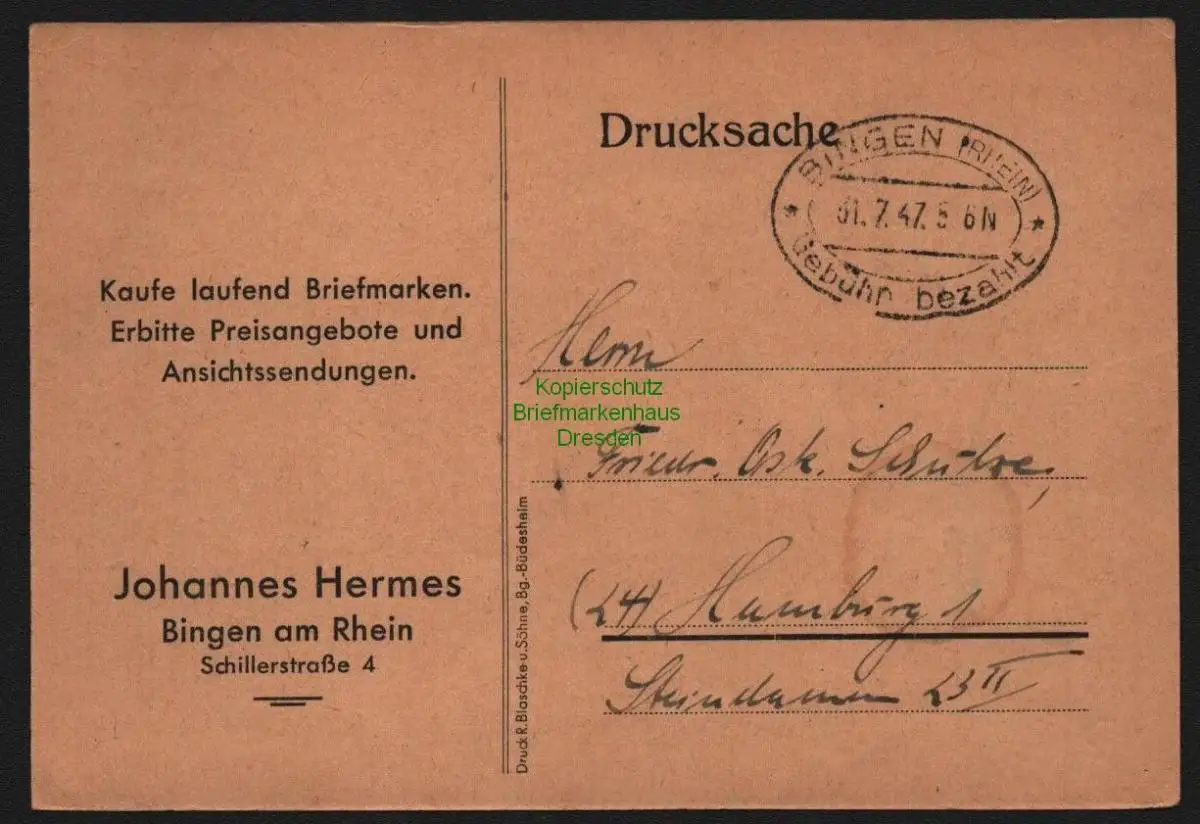 Drucksache
BINGEN (RHEIN)
31.7.47.5 6N
Gebühr bezahlt
Kaufe laufend Briefmarken.
Erbitte Preisangebote und
Ansichtssendungen.
Johannes Hermes
Bingen am Rhein
Schillerstraße 4
Druck R. Blaschke u. Söhne, Bg.-Büdesheim
Herrn
Kopierschutz
Briefmarkenhaus
Dresden
Friedr. Osk. Schulze,
(24) Hamburg 1
Steindamm 23 II